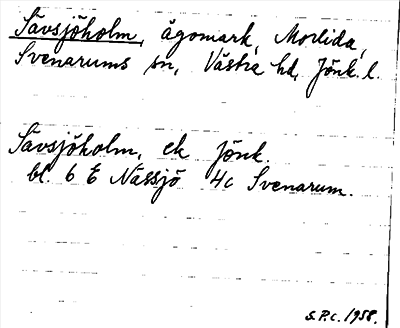 Sävsjöholm, ägomark, Morlida,
Svenarums sn, Västra hd, Jönk. l.
Sävsjöholm, ek Jönk.
bl. 6 E Nässjö 4c Svenarum.
S.P.C. 1958.